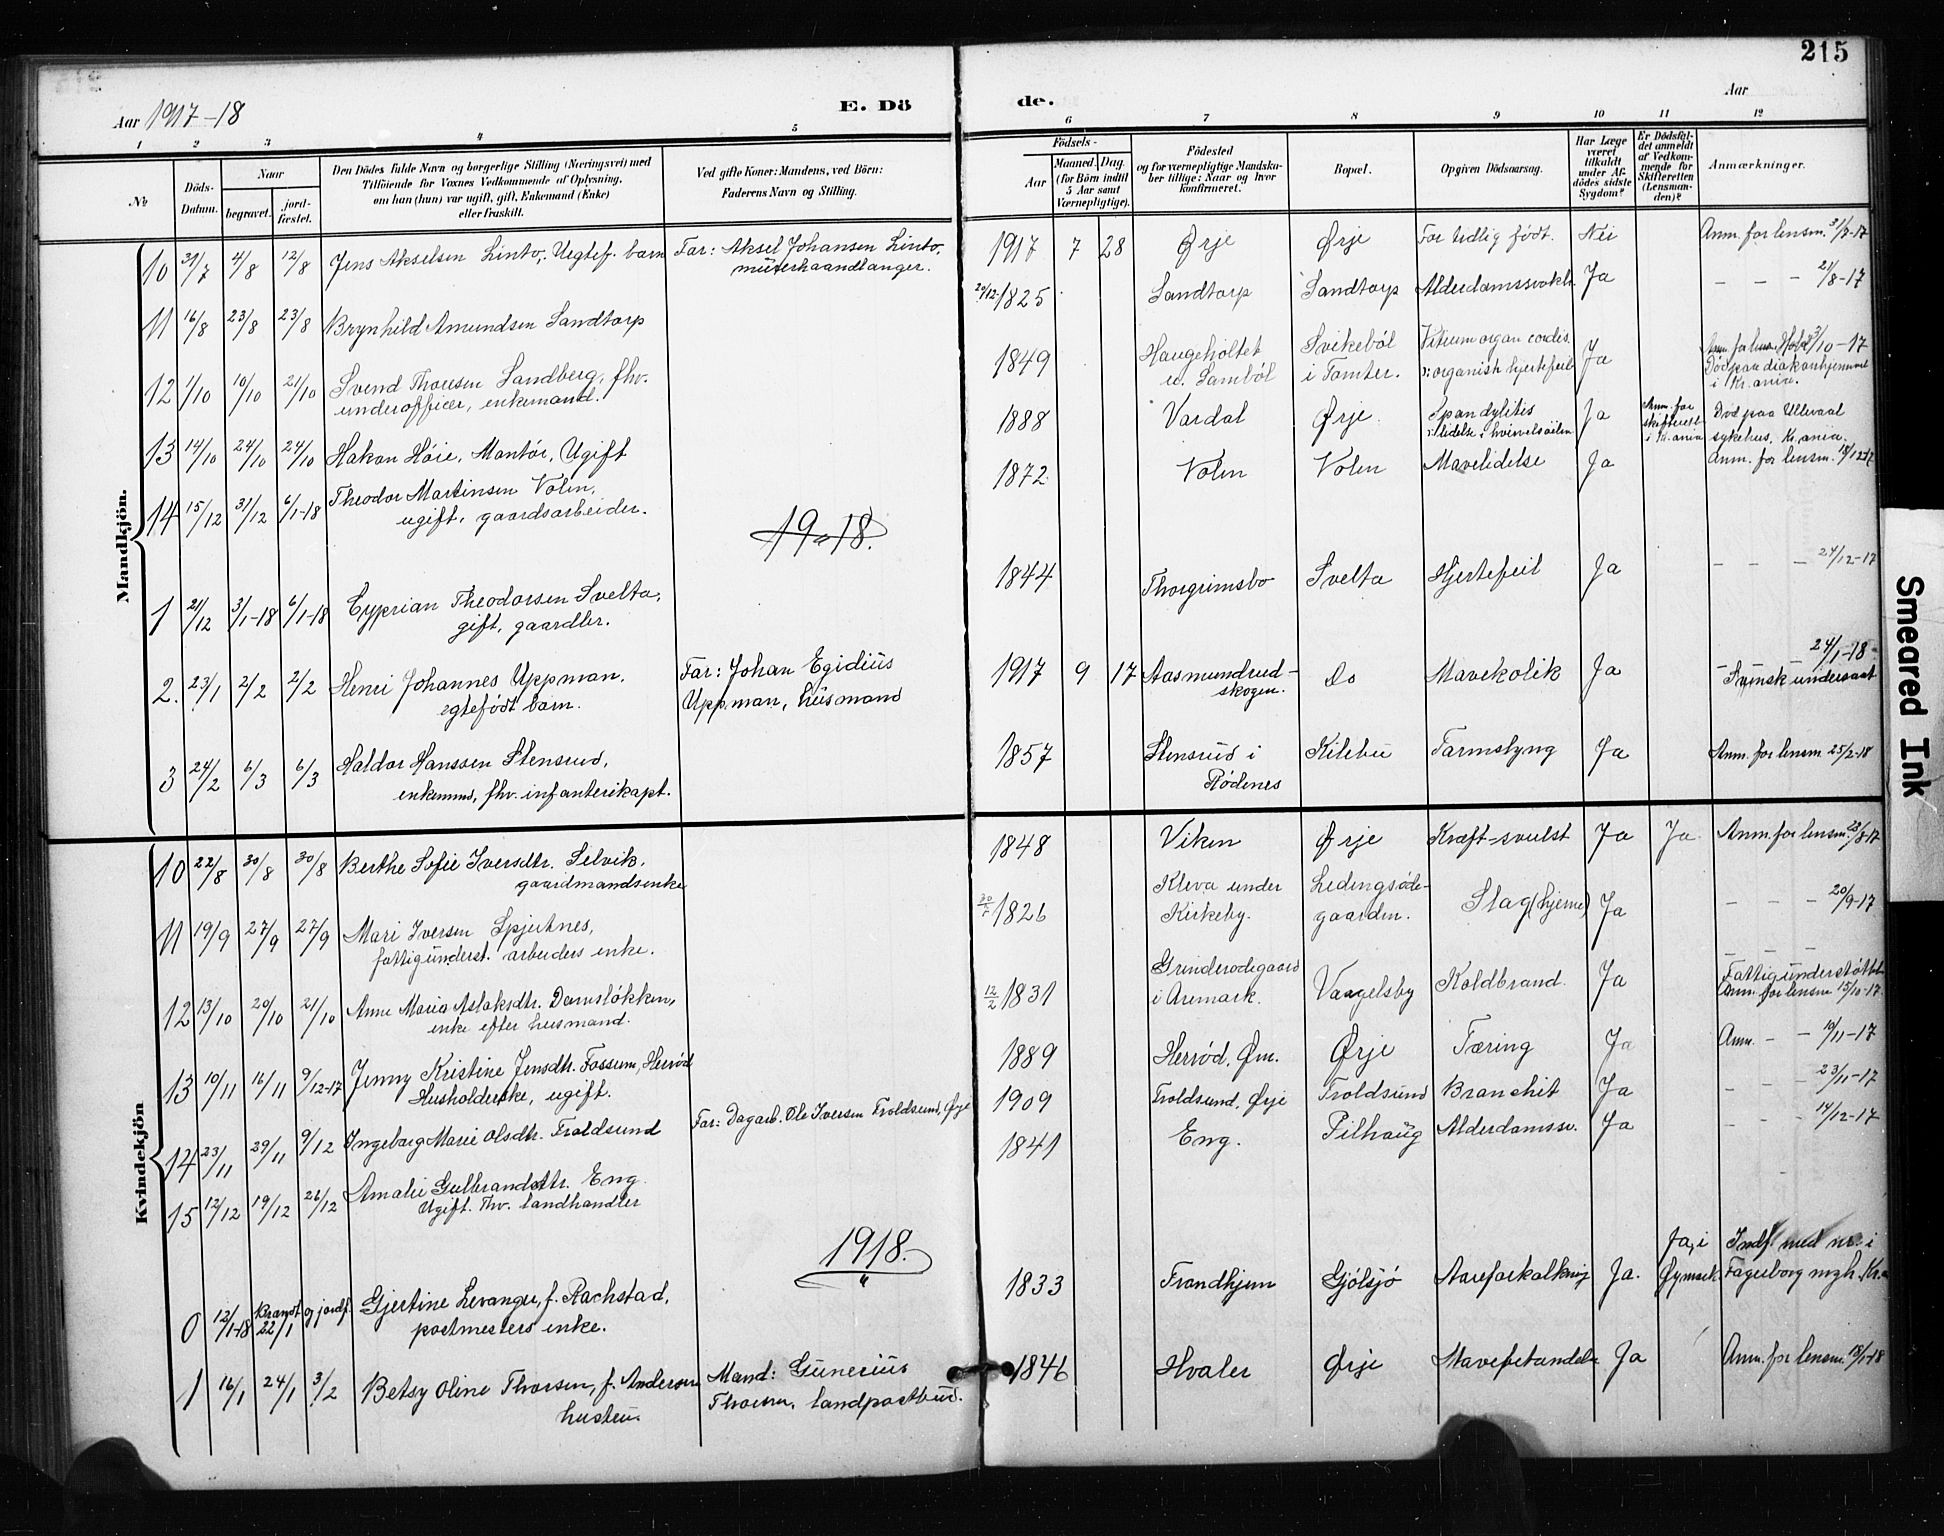 215
Aar 1917-18
E. Dö de.
Aar
1 2 3 4 5 6 7 8 9 10 11 12
№
Döds-Datum.
Naar
begravet.
jord-fæstet.
Den Dödes fulde Navn og borgerlige Stilling (Næringsvei) med
Tilföiende for Voxnes Vedkommende af Oplysning,
om han (hun) var ugift, gift, Enkemand (Enke)
eller fraskilt.
Ved gifte Koner: Mandens, ved Börn:
Faderens Navn og Stilling.
Födsels-
Aar
Maaned. Dag.
(for Börn indtil
5 Aar samt
Værnepligtige).
Födested
og for værnepligtige Mandska-
ber tillige: Naar og hvor
konfirmeret.
Bopæl.
Opgiven Dödsaarsag.
Har Læge
været
tilkaldt
under Af-
dödes sidste
Sygdom?
Er Dödsfal-
det anmeldt
af Vedkom-
mende for
Skifteretten
(Lensman-
den)?
Anmærkninger.
Mandkjön.
10 31/7 4/8 12/8 Jens Akselsen Linto, Uegtef. barn Far: Aksel Johansen Linto, 1917 7 28 Ørje Ørje For tidlig født. Nei Anm. for lensm. 31/7-17
murerhaandlanger.
11 16/8 23/8 23/8 Brynhild Amundsen Sandtorp 20/12 1825 Sandtorp Sandtorp Alderdomssvakh. Ja - - - 21/8-17
12 1/10 10/10 21/10 Svend Thoresen Sandberg, fhv. 1849 Haugeholtet Svikebøl Vitium organ cordis. Ja 3/10-17
underofficer, enkemand. u. Sambøl i Tomter. ɔ: organisk hjertefeil Död paa diakonhjemmet
i Kr.ania.
13 14/10 24/10 24/10 Hakon Høie, Montør, Ugift 1888 Vardal Ørje Spondylitis Ja Anm. for Död paa Ullevaal
ɔ: lidelse i hvirvelsøilen skifteret i Kr.ania sykehus, Kr.ania.
14 15/12 31/12 6/1-18 Theodor Martinsen Volen, 1872 Volen Volen Mavelidelse Ja Anm. for lensm. 18/12-17
ugift, gaardsarbeider.
19 18.
1 21/12 3/1-18 6/1-18 Cyprian Theodorsen Svelta, 1844 Thorgrimsbo Svelta Hjertefeil Ja - - - 24/12-17
gift, gaardbr.
2. 23/1 2/2 2/2 Henri Johannes Uppman, Far: Johan Egidius 1917 9 17 Aasmundrud- Do Mavekolik Ja 24/1-18
egtefødt barn. Uppman, husmand skogen. Svensk undersaat
3 24/2 6/3 6/3 Haldor Hanssen Stensrud, 1857 Stensrud i Kilebu Tarmslyng Ja Anm. for lensm 25/2-18
enkemand, fhv. infanterikapt. Rødenes
Kvindekjön
10 22/8 30/8 30/8 Berthe Sofie Iversdtr. Selvik, 1848 Viken Ørje Kræft-svulst Ja Ja Anm. for lensm. 23/8-17
gaardmandsenke
11 19/9 27/9 27/9 Mari Iversen Spjutnes, 1826 Kleva under Ledingsøde- Slag (hjerne) Ja - - - 20/9-17
fattigunderst. arbeiders enke. Kirkeby. gaarden.
12 13/10 20/10 21/10 Anne Maria Aslaksdtr. Damsløkken, 12/2 1831 Grinderødegaard Vaagelsby Koldbrand. Ja Fattigunderstøttet
enke efter husmand. i Aremark. Anm. for lensm 15/10-17.
13 10/11 16/11 9/12-17 Jenny Kristine Jensdtr. Fossum, Herrød 1889 Herrød, Øm. Ørje Tæring Ja Anm. - - 10/11-17
Husholderske, ugift.
14 23/11 29/11 9/12 Ingeborg Marie Olsdtr. Troldsund Far: Dagarb. Ole Iversen Troldsund, Ørje 1909 Troldsund, Ørje Troldsund Bronchit Ja - - - 23/11-17
15 12/12 19/12 26/12 Amalie Gulbrandsdtr. Eng. 1841 Eng. Pilhaug Alderdomssv. Ja - - - 14/12-17
Ugift. Fhv. landhandler
1918.
0 12/1-18 Brændt og jordf. 22/1 Gjertine Levanger, f. Rachstad, 1833 Trondhjem Gjølsjø Aareforkalkning Ja. Ja, i Øymark. Indf. med nr. i
postmesters enke. Fagerborg mgh. Kr.a
1 16/1 24/1 3/2 Betsy Oline Thorsen, f. Andersen Mand: Gunerius 1846 Hvaler Ørje Mavebetændelse Ja Anm. for lensm. 18/1-18
hustru. Thorsen, landpostbud.
Smeared Ink